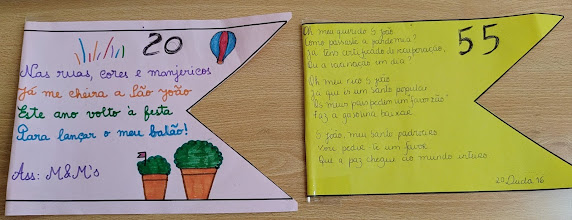 20
Nas ruas, cores e manjericos
Já me cheira a São João
Este ano volto à festa
Para lançar o meu balão!
Ass: M&M's
55
Oh meu querido S. João
Como passaste a pandemia?
Já tens certificado de recuperação,
Ou a vacinação em dia?
Oh meu rico S. João
Já que és um santo popular
Os meus pais pedem um "favorzão"
Faz a gasolina baixar
S. João, meu santo padroeiro
Vou pedir-te um favor
Que a paz chegue ao mundo inteiro
Duda 16